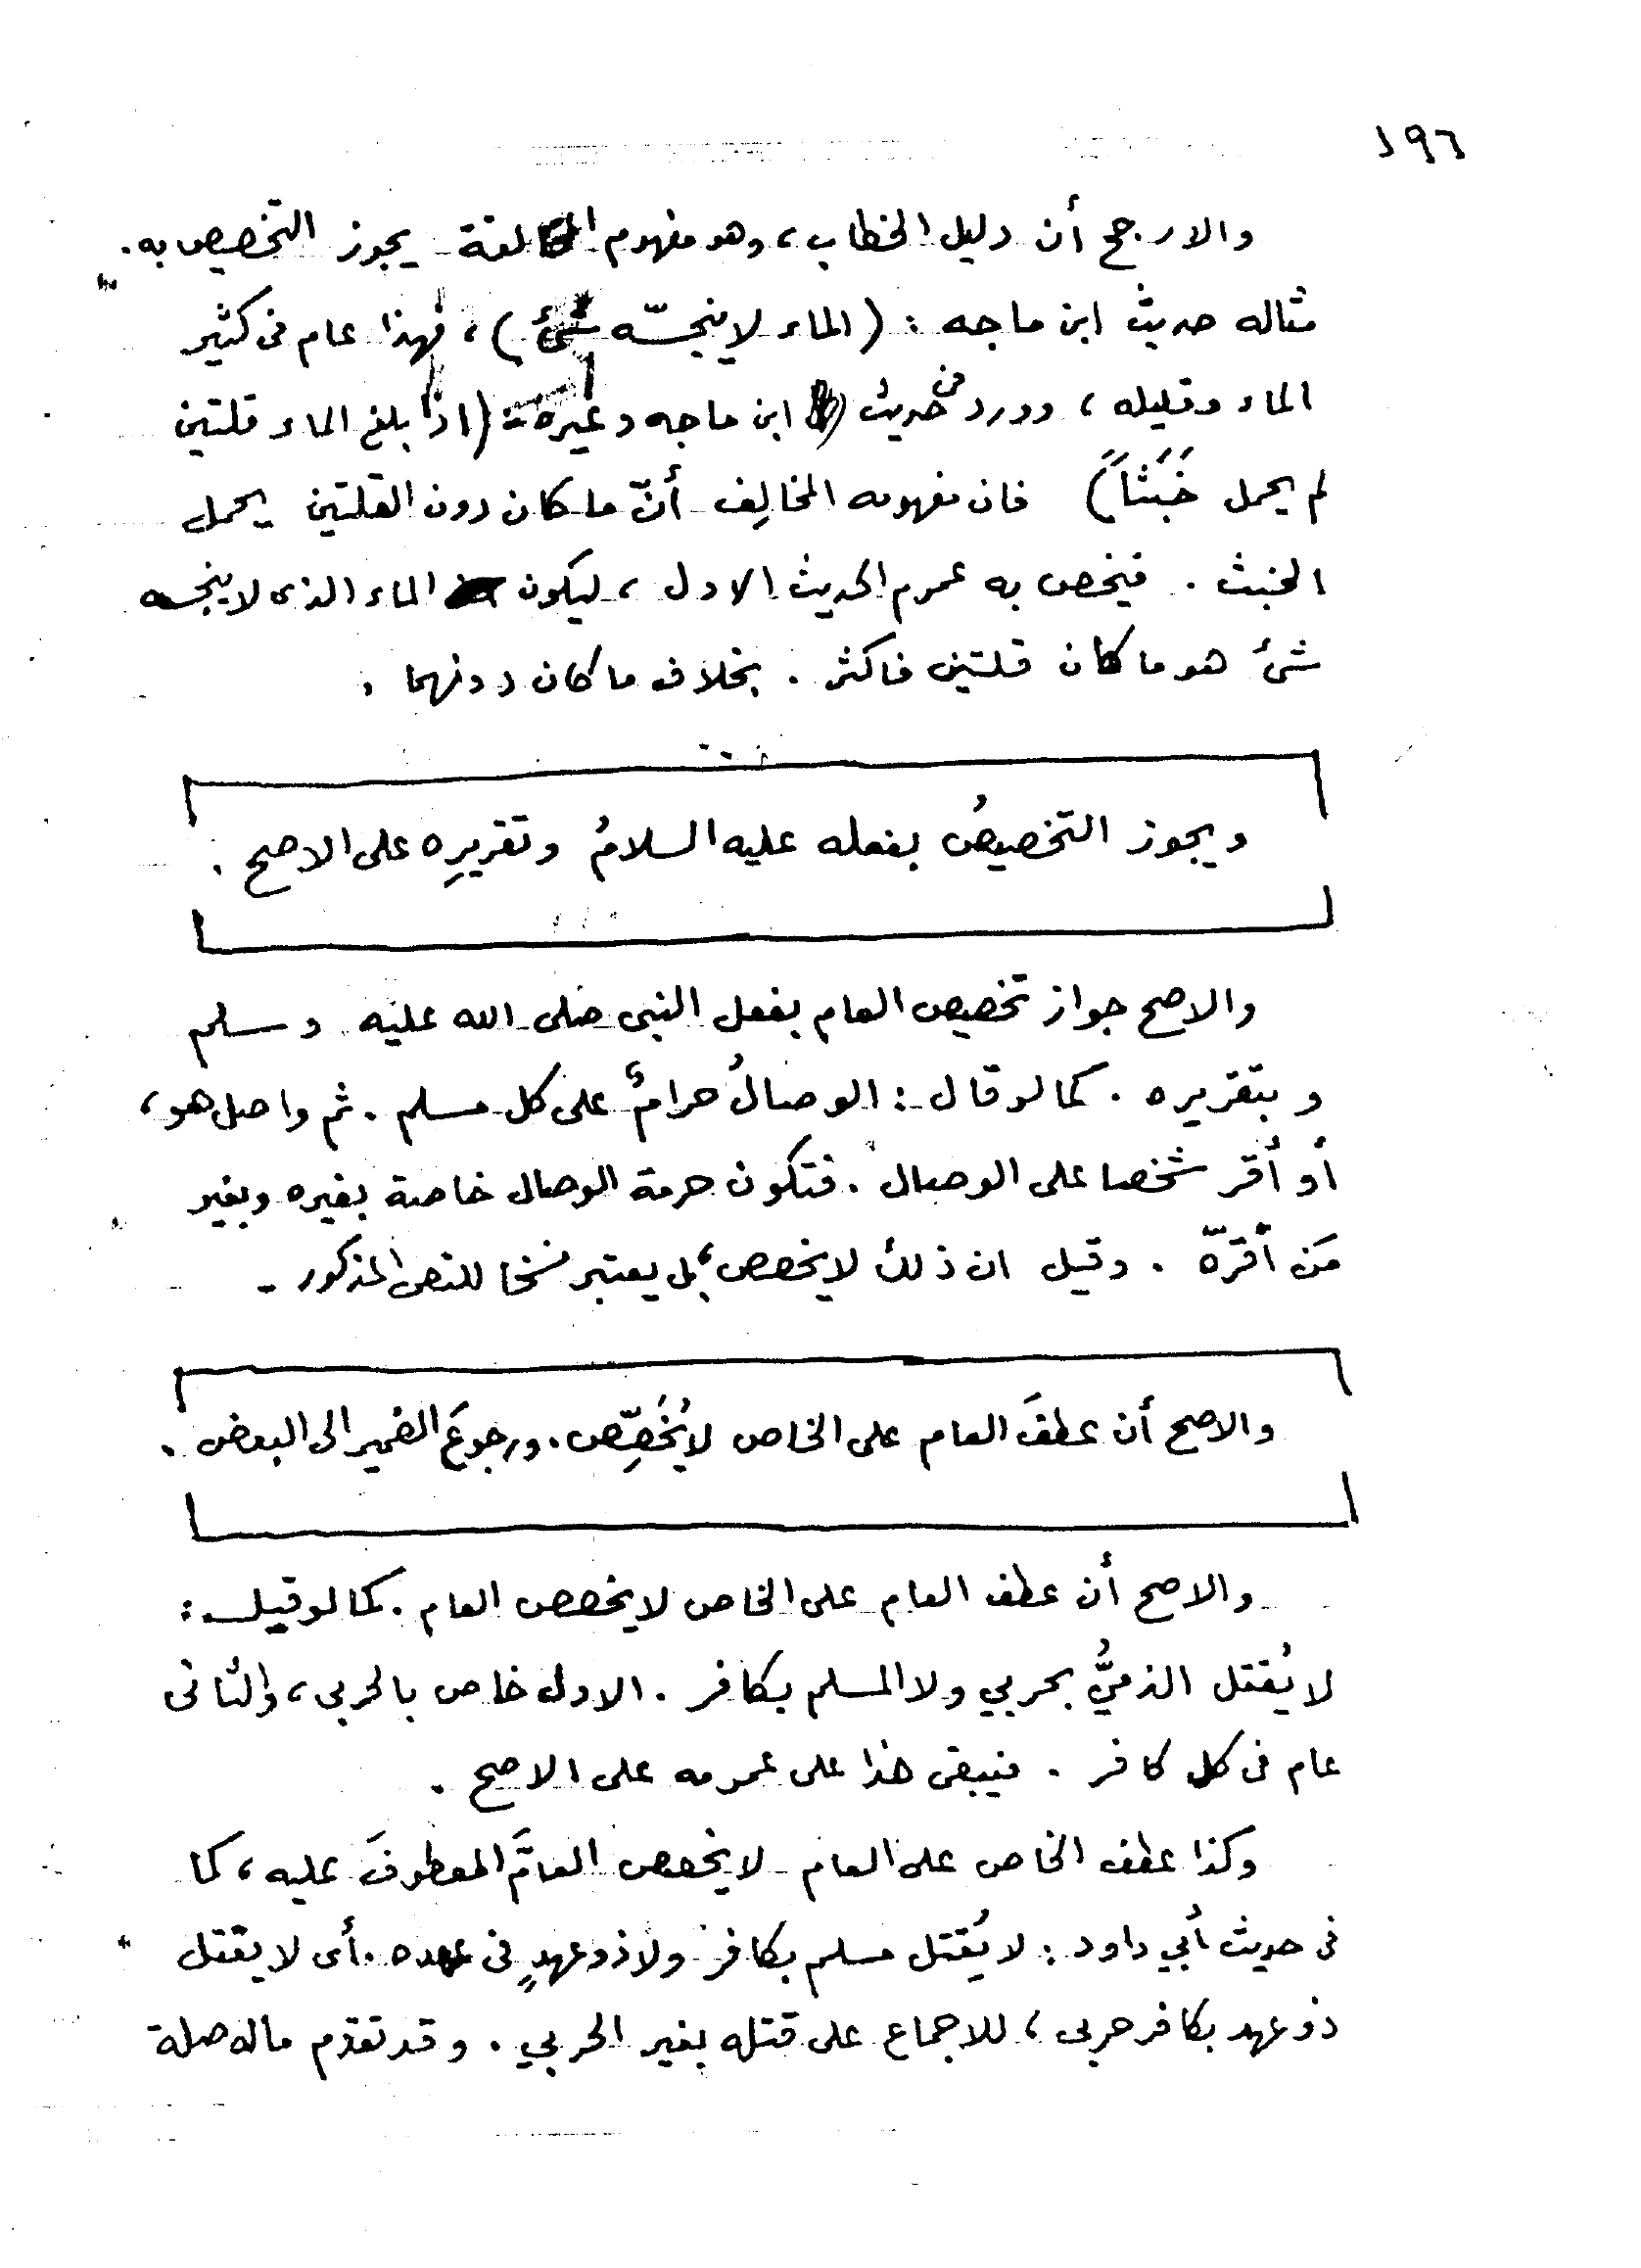 ١٩٦
والارجح أن دليل الخطاب، وهو مفهوم المخالفة يجوز التخصيص به.
مثاله حديث ابن ماجه : (الماء لا ينجسّه شئ)، فهذا عام فى كثير
الماء وقليله، وورد فى حديث ابن ماجه وغيره : (اذا بلغ الماء قلتين
لم يحمل خَبَثَاً) فان مفهومه المخالِف أنّ ما كان دون القلتين يحمل
الخبث . فيخص به عموم الحديث الاول، ليكون الماء الذى لا ينجسه
شئ هو ما كان قلتين فاكثر . بخلاف ما كان دونهما .
ويجوز التخصيصُ بفعله عليه السلامُ وتقريرِه على الاصح .
والاصح جواز تخصيص العام بفعل النبى صلى الله عليه وسلم
وبتقريره . كما لو قال : الوصالُ حرامٌ على كل مسلم . ثم واصل هو،
أو أقر شخصا على الوصال . فتكون حرمة الوصال خاصة بغيره وبغير
مَن أقرّه . وقيل ان ذلك لا يخصص، بل يعتبر نسخا للنص المذكور .
والاصح أن عطفَ العام على الخاص لا يُخَصِّص . ورجوعَ الضمير الى البعض .
والاصح أن عطف العام على الخاص لا يخصص العام . كما لو قيل :
لا يُقتل الذميُّ بحربي ولا المسلم بكافر . الاول خاص بالحربى، والثانى
عام فى كل كافر . فيبقى هذا على عمومه على الاصح .
وكذا عطف الخاص على العام لا يخصص العامَّ المعطوفَ عليه، كما
فى حديث أبي داود : لا يُقتل مسلم بكافر ولا ذو عهدٍ فى عهده . أى لا يقتل
ذو عهد بكافر حربى، للاجماع على قتله بغير الحربي . وقد تقدم ما له صلة